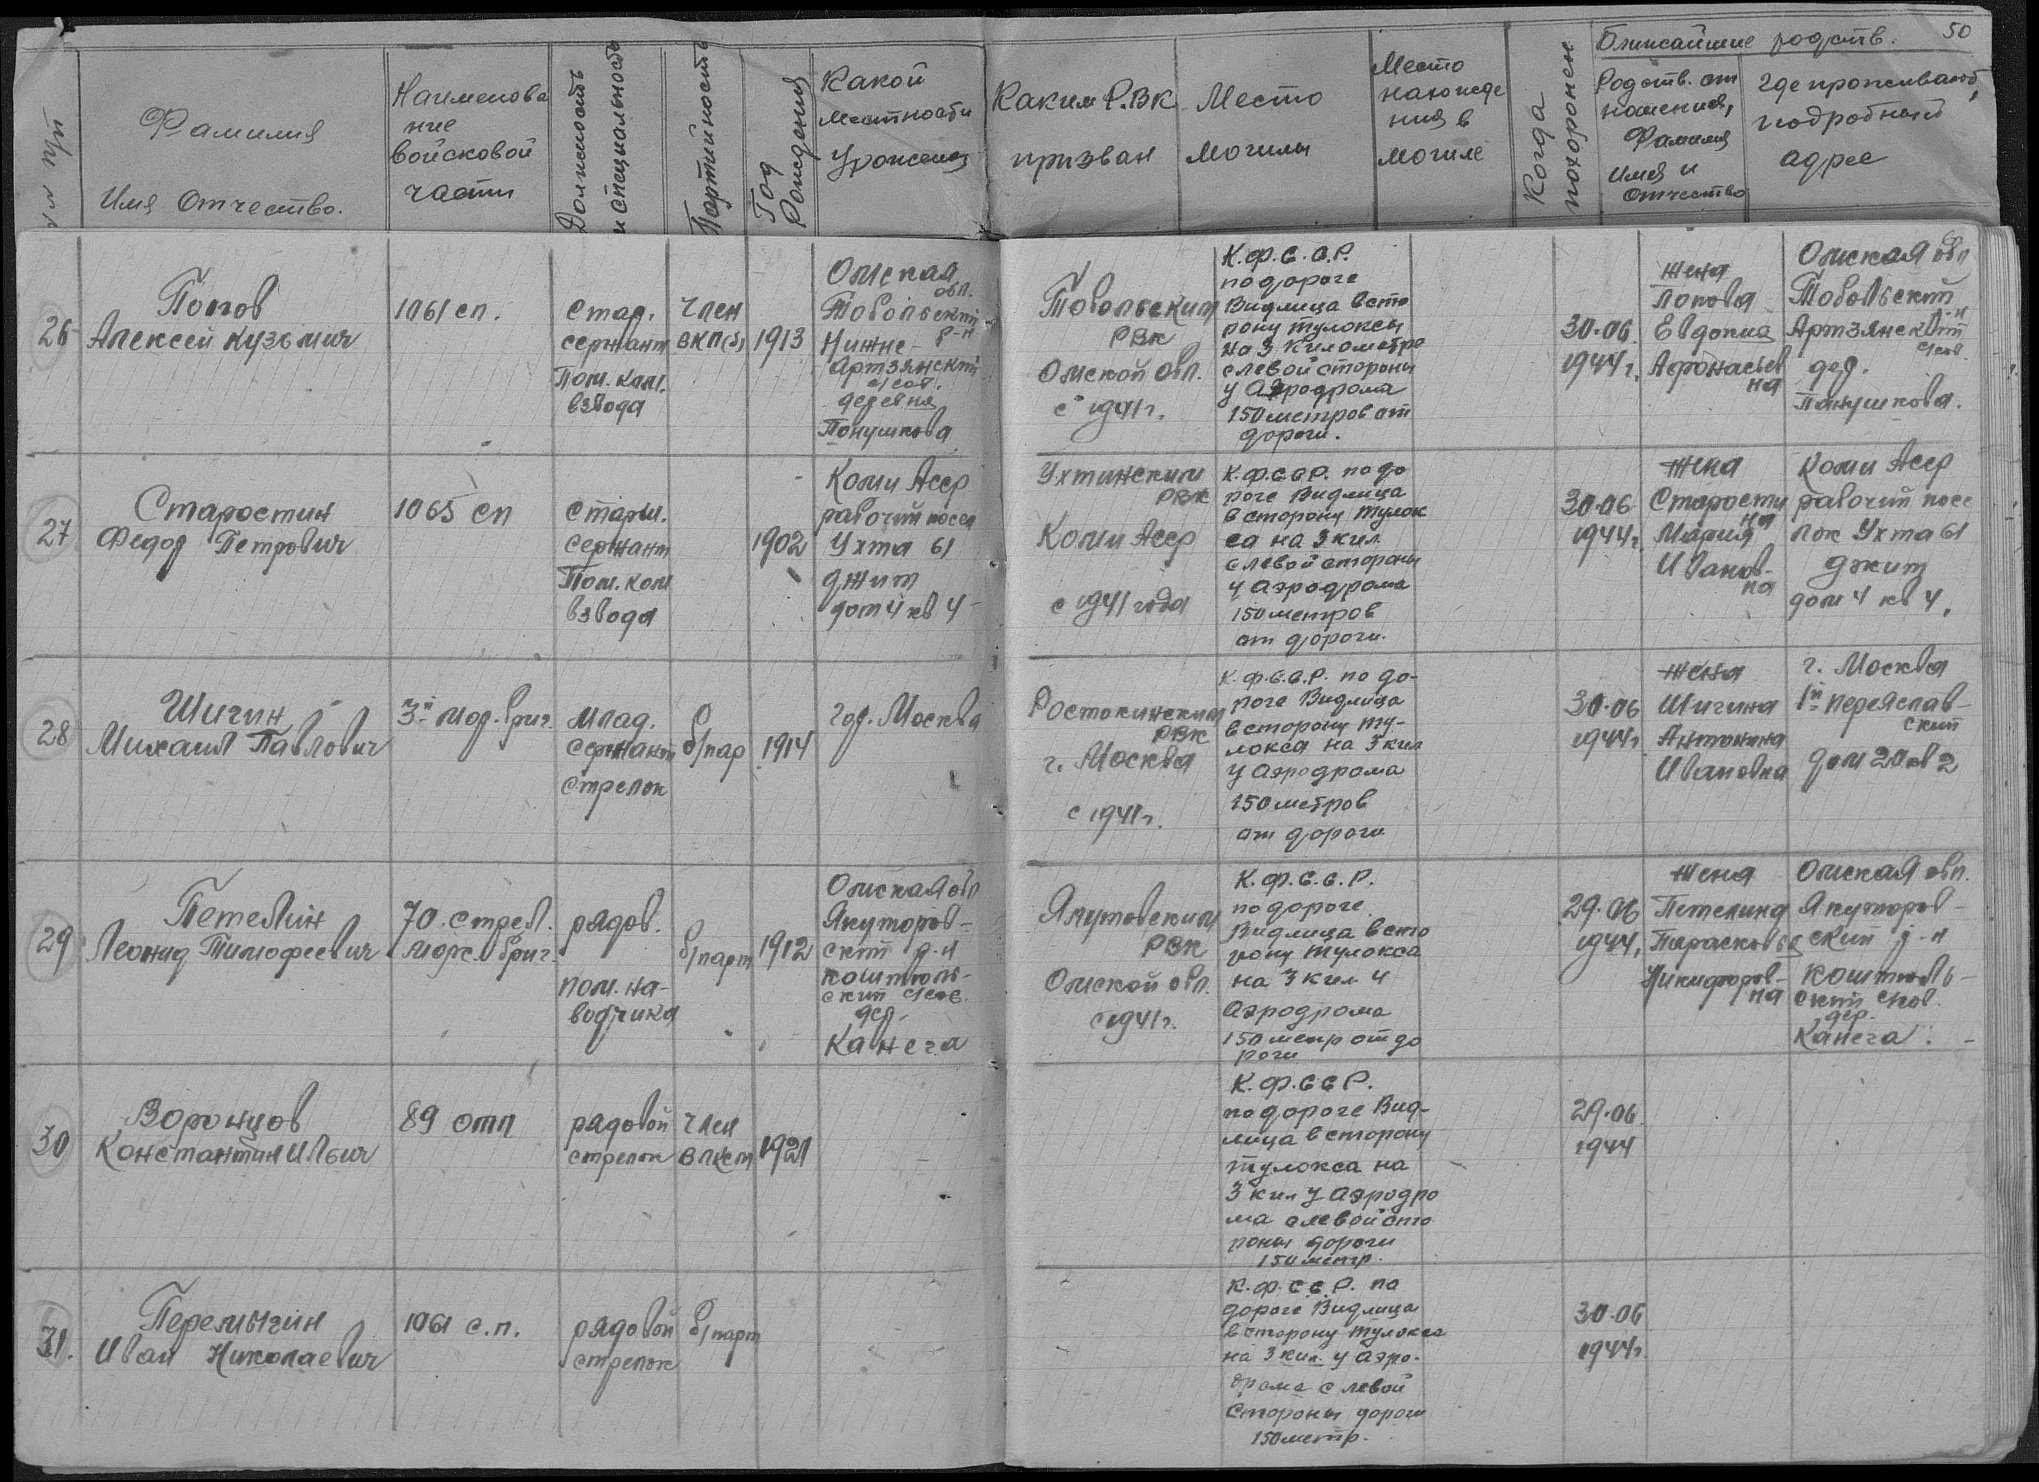 50
№ п/п
Фамилия
Имя Отчество.
Наименова
ние
войсковой
части
Должность
и специальность
Партийность
Год
Рождения
Какой
местности
Уроженец
Каким Р.ВК
призван
Место
могилы
Место
нахожде
ния в
могиле
Когда
похоронен
Ближайшие родств.
Родств. от
ношения,
Фамилия
Имя и
Отчество
Где проживают,
подробный
адрес
26
Попов
Алексей Кузьмич
1061 сп.
Стар.
сержант
Пом. ком.
взвода
Член
ВКП(б)
1913
Омская
обл.
Тобольский
р-н
Нижне-
Артзянский
с/сов.
деревня
Панушкова
Тобольским
РВК
Омской обл.
с 1941 г.
К.Ф.С.С.Р.
по дороге
Видлица в сто
рону тулоксы
на 3 километре
с левой стороны
у Аэродрома
150 метров от
дороги.
30.06
1944 г.
жена
Попова
Евдокия
Афонасьев
на
Омская обл
Тобольский
р-н
Артзянский
с/сов.
дер.
Панушкова.
27
Старостин
Федор Петрович
1065 сп
Старш.
сержант
Пом. ком
взвода
1902
Коми Асср
рабочий посел
Ухта 61
джит
дом 4 кв 4
Ухтинским
РВК
Коми Асср
с 1941 года
К.Ф.ССР. по до
роге Видлица
в сторону тулок
са на 3 кил.
с левой стороны
у Аэродрома
150 метров
от дороги.
30.06
1944 г.
жена
Старости
на
Мария
Иванов-
на
Коми Асср
рабочий посе
лок Ухта 61
джит
дом 4 кв 4.
28
Шигин
Михаил Павлович
3й мор. бриг.
млад.
сержант
стрелок
б/пар
1914
гор. Москва
Ростокинским
РВК
г. Москва
с 1941 г.
К.Ф.С.С.Р. по до-
роге Видлица
в сторону ту-
локса на 3 кил
у Аэродрома
150 метров
от дороги
30.06
1944 г
жена
Шигина
Антонина
Ивановна
г. Москва
1й Переяслав-
ский
дом 20 кв 2
29
Петелин
Леонид Тимофеевич
70. стрел.
морс. бриг.
рядов.
пом. на-
водчика
б/парт
1912
Омская обл
Якуторов-
ский р-н
коштюль-
ский с/сов.
дер.
Канега
Якутовским
РВК
Омской обл.
с 1941 г.
К.Ф.С.С.Р.
по дороге
Видлица в сто
рону тулокса
на 3 кил у
Аэродрома
150 метр от до
роги
29.06
1944,
жена
Петелина
Тарасковья
Никифоров-
на
Омская обл.
Якуторов-
ский р-н
коштюль-
ский с/сов.
дер.
Канега.
30
Воронцов
Константин Ильич
89 отп
рядовой
стрелок
Член
ВЛКСМ
1921
К.Ф.ССР.
по дороге Вид-
лица в сторону
тулокса на
3 кил у Аэродро
ма с левой сто
роны дороги
150 метр.
29.06
1944
31.
Перемыгин
Иван Николаевич
1061 с.п.
рядовой
стрелок
б/парт
К.Ф.С.С.Р. по
дороге Видлица
в сторону тулокса
на 3 кил. у Аэро-
дрома с левой
стороны дороги
150 метр.
30.06
1944 г.